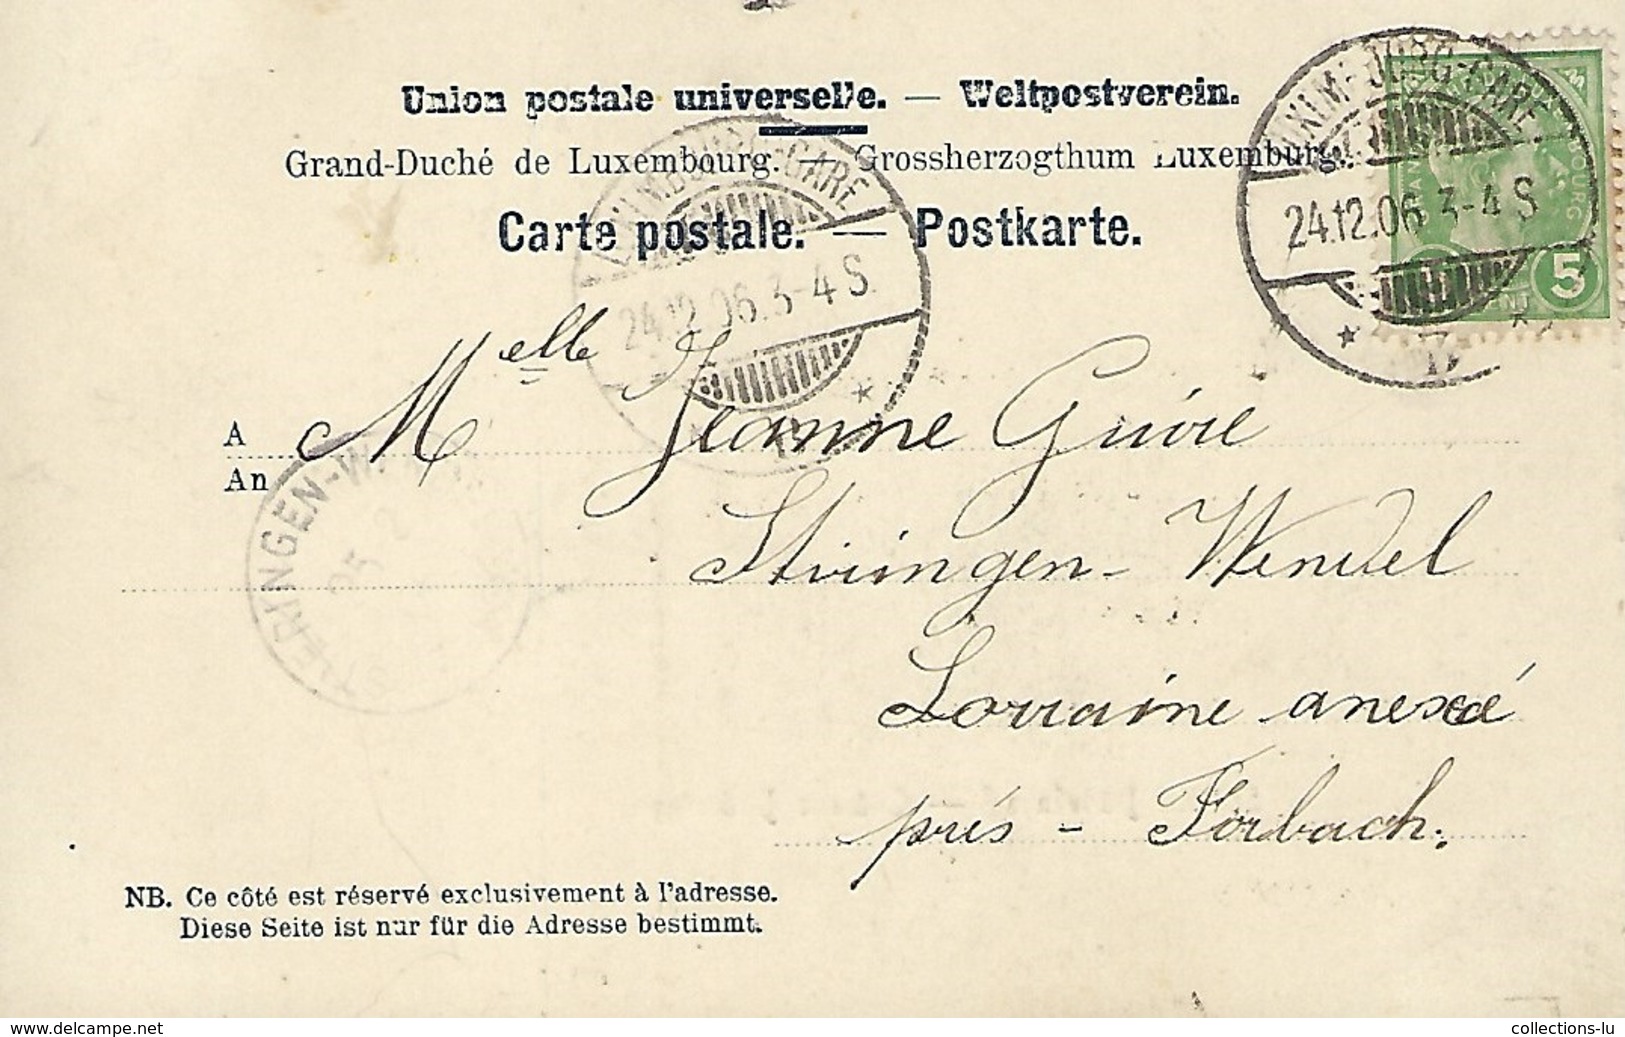 Union postale universelle. — Weltpostverein.
Grand-Duché de Luxembourg. — Grossherzogthum Luxemburg.
Carte postale. — Postkarte.
LUXEMBOURG-GARE
24.12.06.3-4 S
LUXEMBOURG-GARE
24.12.06 3-4 S
5
A
An
Melle Jeanne Guire
Stiringen-Wendel
Lorraine anexeé
prés - Forbach.
STIERINGEN-W
25
NB. Ce côté est réservé exclusivement à l'adresse.
Diese Seite ist nur für die Adresse bestimmt.
www.delcampe.net
collections-lu